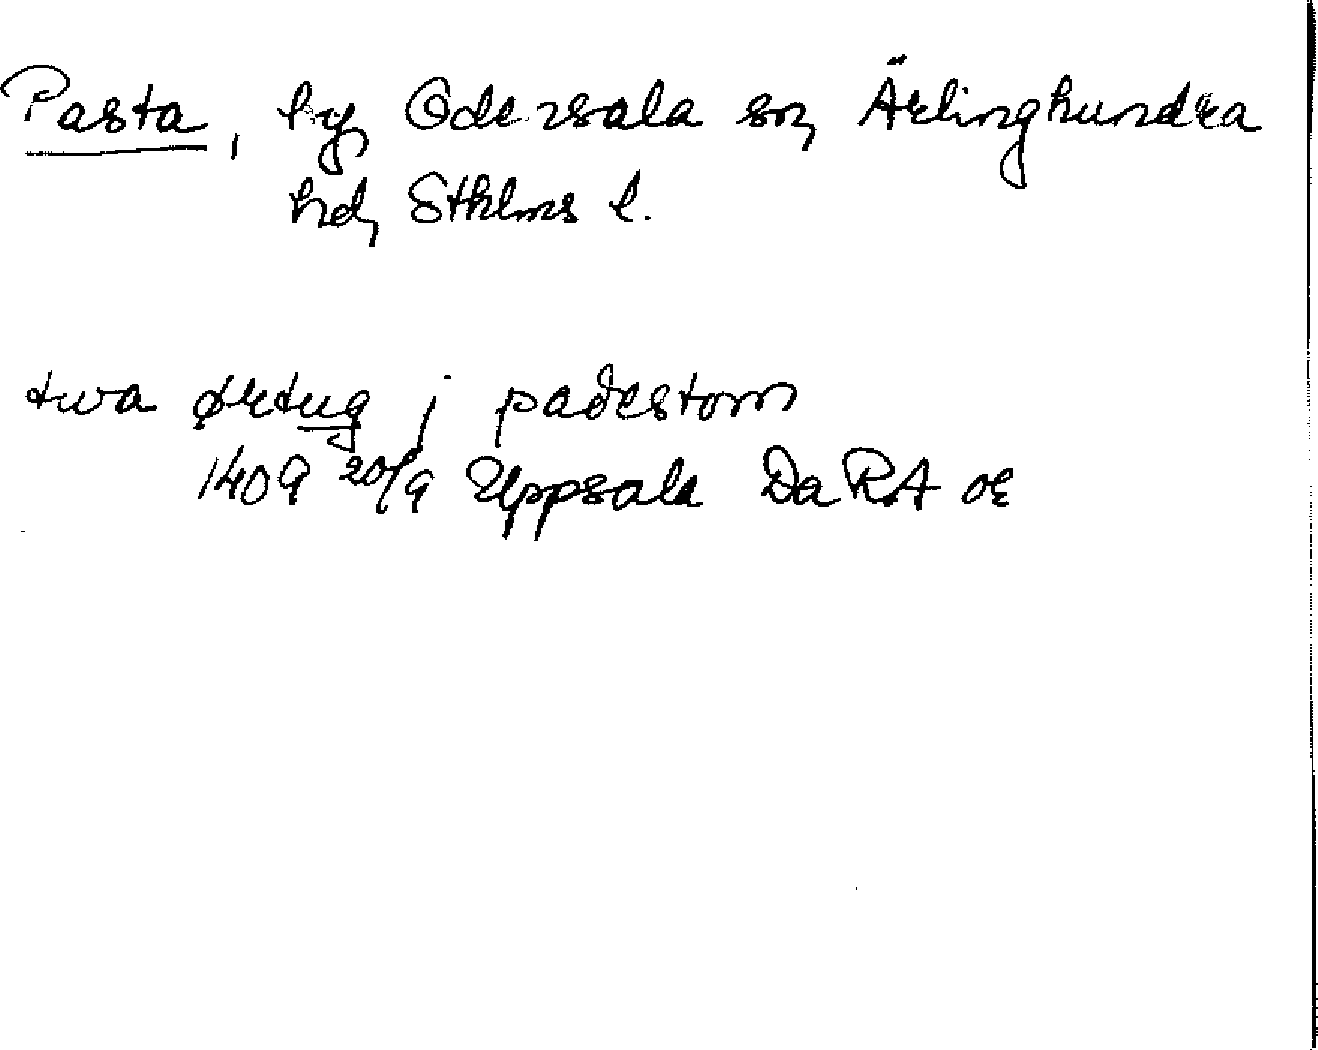 Pasta, by, Odensala sn, Ärlinghundra
hd, Sthlms l.
twa ørtug j padestom
1409 20/9 Uppsala DaRA or